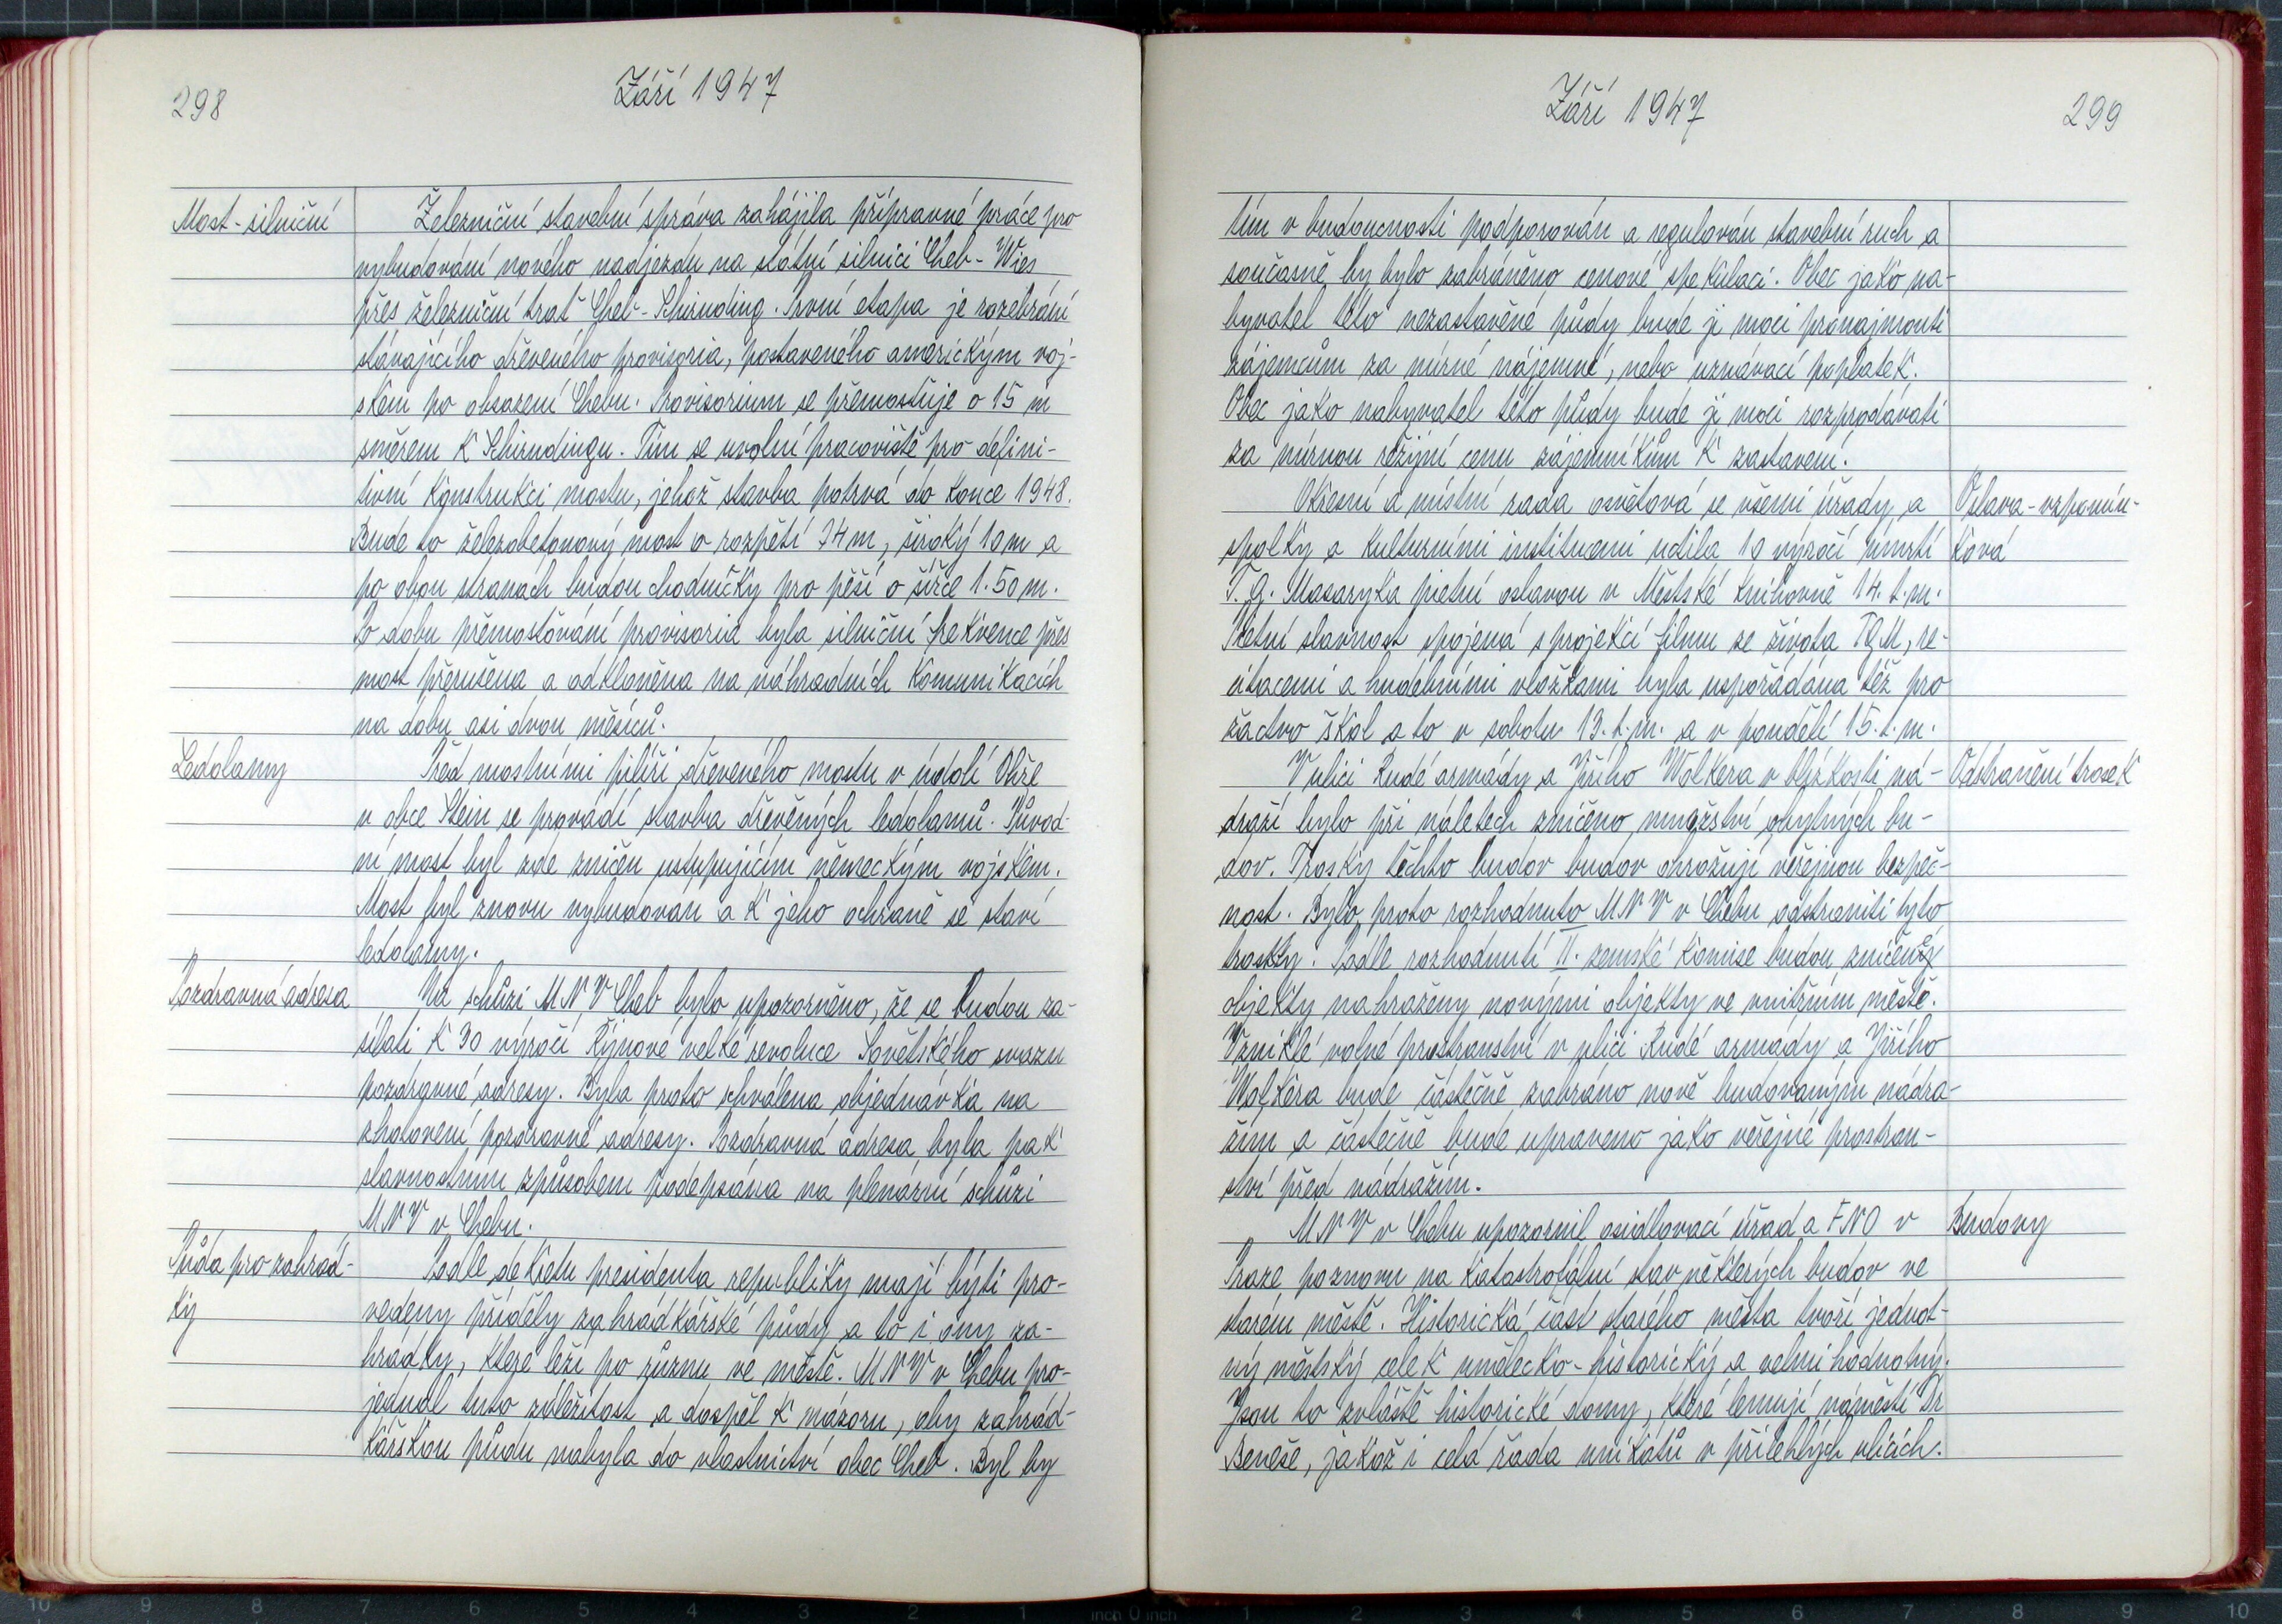 298
Září 1947
Most-silniční
Železniční stavební správa zahájila přípravné práce pro
vybudování nového nadjezdu na státní silnici Cheb-Wies
přes železniční trať Cheb-Schirnding. První etapa je rozebrání
stávajícího dřeveného provisoria, postaveného americkým voj-
skem po obsazení Chebu. Provisorium se přemostuje o 15 m
směrem k Schirndingu. Tím se uvolní pracoviště pro defini-
tivní konstrukci mostu, jehož stavba potrvá do konce 1948.
Bude to železobetonový most o rozpětí 34m, široký 10m a
po obou stranách budou chodníčky pro pěší o šířce 1.50m.
Po dobu přemosťování provisoria byla silniční frekvence přes
most přerušena a odkloněna na náhradních komunikacích
na dobu asi dvou měsíců.
Ledolamy
Před mostními pilíři dřeveného mostu v údolí Ohře
u obce Stein se provádí stavba dřevěných ledolamů. Původ-
ní most byl zde zničen ustupujícím německým vojskem.
Most byl znovu vybudován a k jeho ochraně se staví
ledolamy.
Pozdravná adresa
Na schůzi MNV Cheb bylo upozorněno, že se budou za-
sílati k 30 výročí Říjnové velké revoluce Sovětského svazu
pozdravné adresy. Byla proto schválena objednávka na
zhotovení pozdravné adresy. Pozdravná adresa byla pak
slavnostním způsobem podepsána na plenární schůzi
MNV v Chebu.
Půda pro zahrád-
ky
Podle dekretu presidenta republiky mají býti pro-
vedeny příděly zahrádkářské půdy a to i ony za-
hrádky, které leží po různu ve městě. MNV v Chebu pro-
jednal tuto záležitost a dospěl k názoru, aby zahrád-
kářskou půdu nabyla do vlastnictví obec Cheb. Byl by
Září 1947
299
tím v budoucnosti podporován a regulován stavební ruch a
současně by bylo zabráněno cenové spekulaci. Obec jako na-
byvatel této nezastavěné půdy bude ji moci pronajmouti
zájemcům za mírné nájemné, nebo uznávací poplatek.
Obec jako nabyvatel této půdy bude ji moci rozprodávati
za mírnou režijní cenu zájemníkům k zastavení.
Okresní a místní rada osvětová se všemi úřady a
spolky a kulturními institucemi uctila 10 výročí úmrtí
T.G. Masaryka pietní oslavou v Městské knihovně 14. t.m.
Pietní slavnost spojená s projekcí filmu ze života TGM, re-
citacemi a hudebními vložkami byla uspořádána též pro
žactvo škol a to v sobotu 13. t.m. a v pondělí 15. t.m.
Oslava-vzpomín-
ková
V ulici Rudé armády a Jiřího Wolkera v blízkosti ná-
draží bylo při náletech zničeno množství obytných bu-
dov. Trosky těchto budov budov ohrožují veřejnou bezpeč-
nost. Bylo proto rozhodnuto MNV v Chebu odstraniti tyto
trosky. Podle rozhodnutí II. zemské komise budou zničené
objekty nahraženy novými objekty ve vnitřním městě.
Vzniklé volné prostranství v ulici Rudé armády a Jiřího
Wolkera bude částečně zabráno nově budovaným nádra-
žím a částečně bude upraveno jako veřejné prostran-
ství před nádražím.
Odstranění trosek
MNV v Chebu upozornil osidlovací úřad a FNO v
Praze poznovu na katastrofální stav některých budov ve
starém městě. Historická část starého města tvoří jednot-
ný městský celek umělecko-historický a velmi hodnotný.
Jsou to zvláště historické domy, které lemují náměstí Dr
Beneše, jakož i celá řada unikátů v přilehlých ulicích.
Budovy